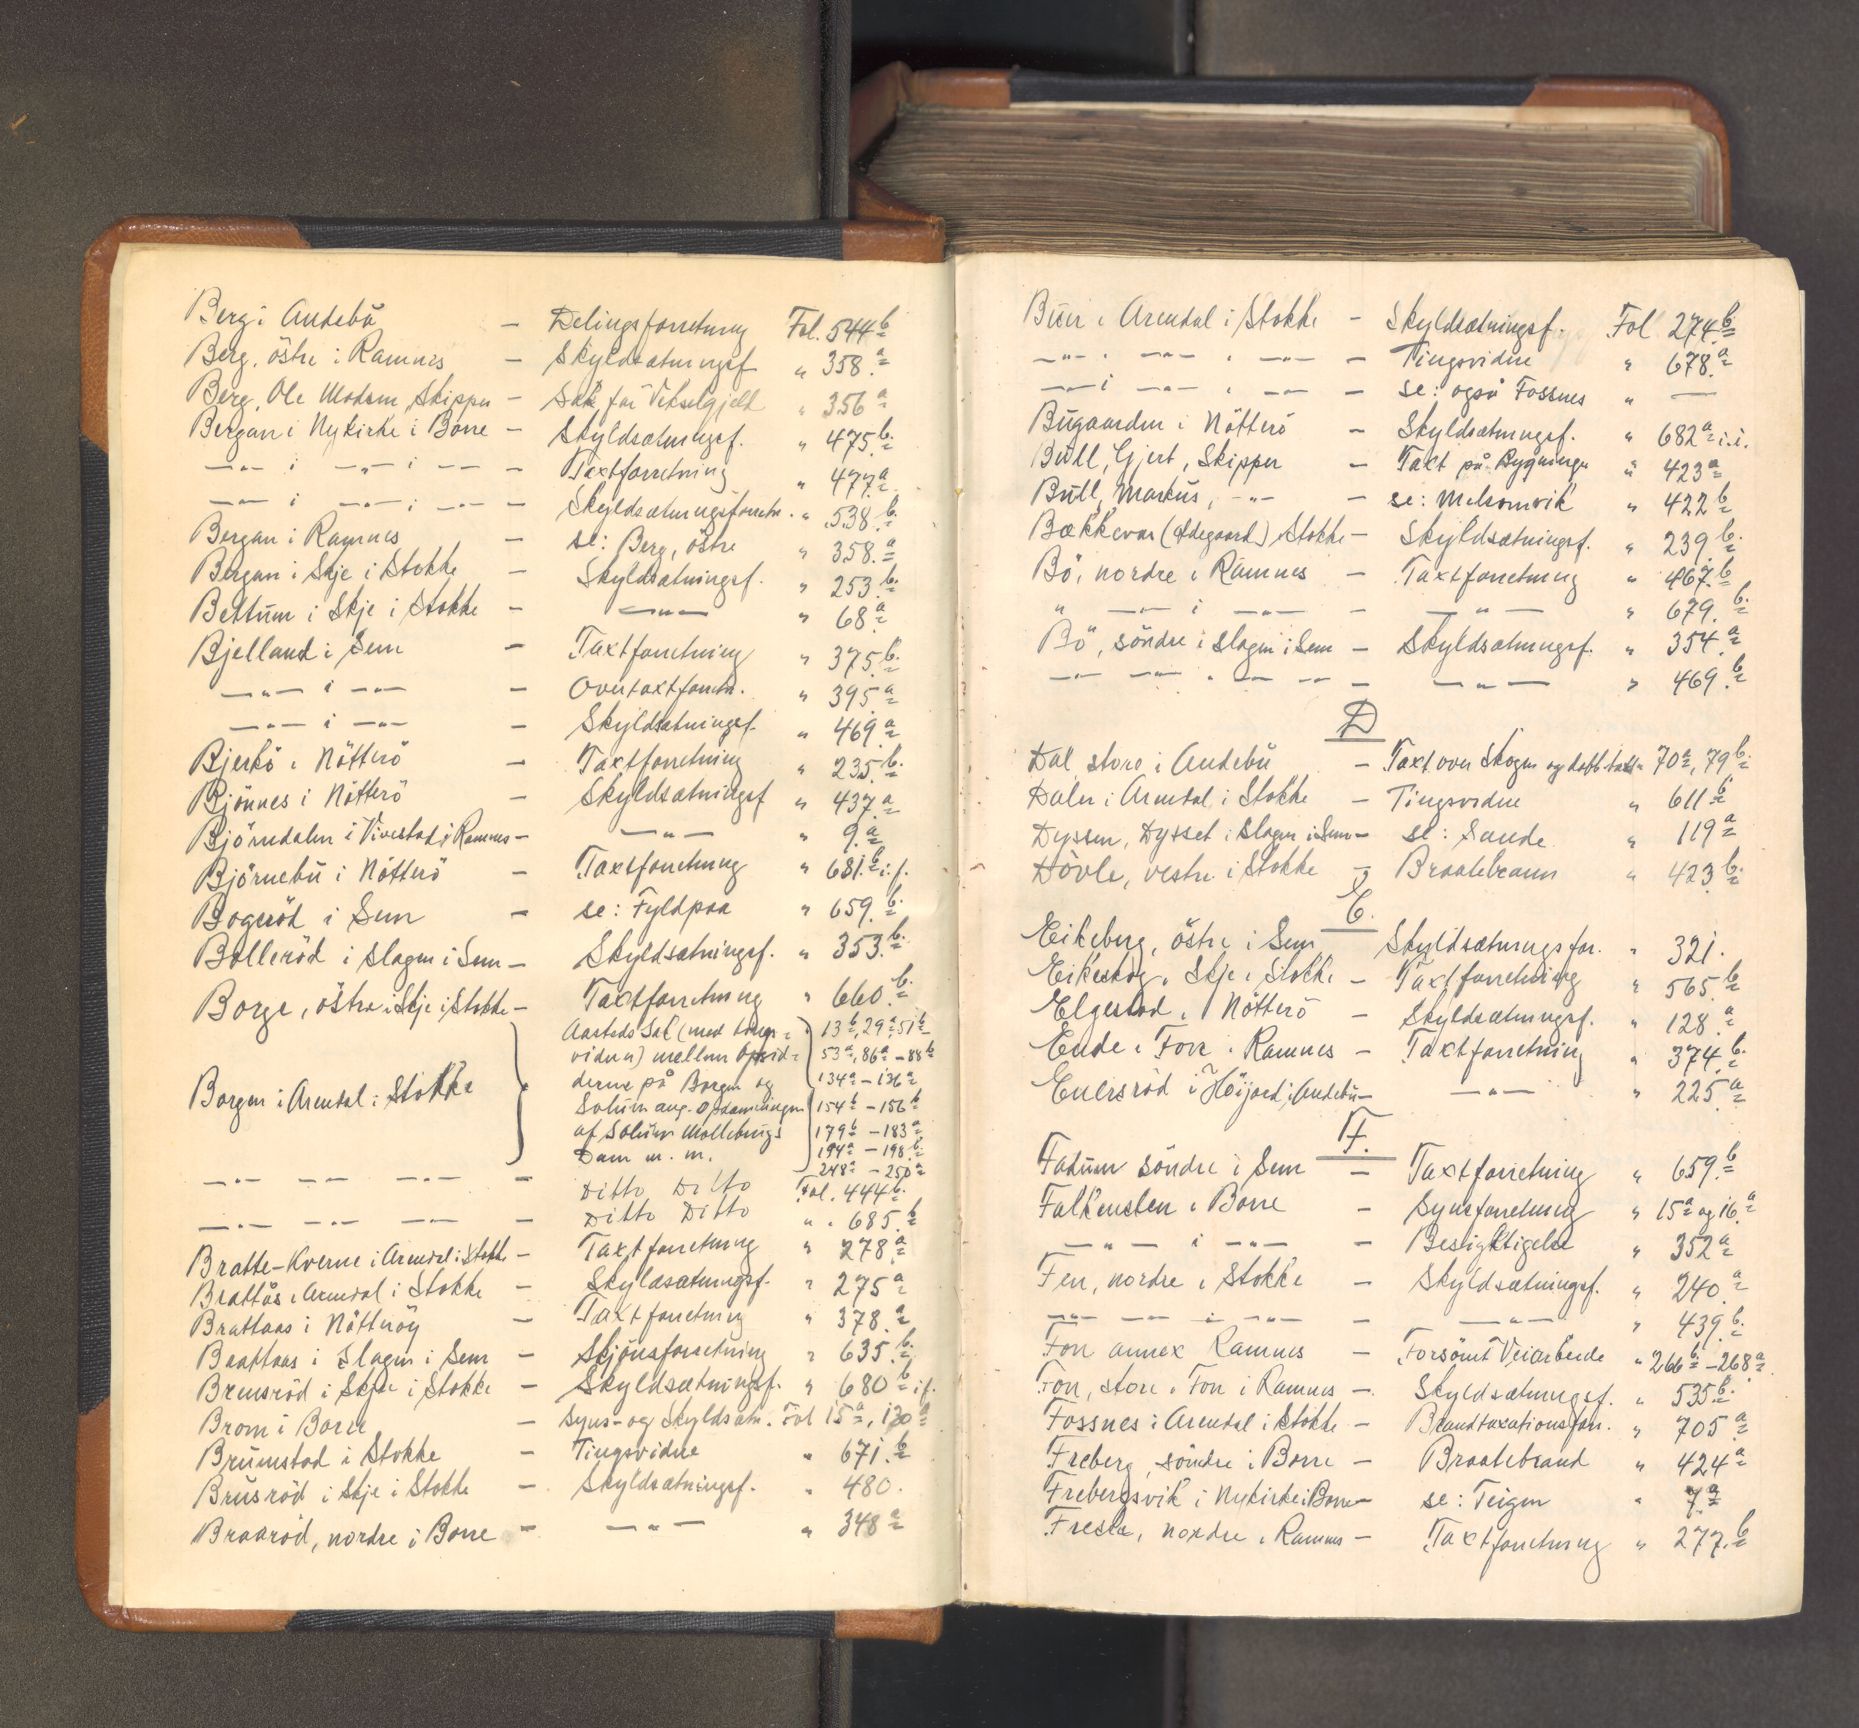 Berg i Andebu – Delingsforretning Fol. 544 b
Berg, östre i Ramnes – Skyldsætningsf. „ 358. a
Berg, Ole Madsen, Skipper – Sak for Vekselgjeld „ 356 a
Bergan i Nykirke i Borre – Skyldsætningsf. „ 475. b.
—„— i —„— i —„— – Taxtforretning „ 477. a
—„— i —„— i —„— – Skyldsætningsforretn. „ 538. b.
Bergan i Ramnes – se: Berg, östre „ 358. a
Bergan i Skje i Stokke – Skyldsætningsf. „ 253. b.
Bettum i Skje i Stokke – —„— „ 68. a
Bjelland i Sem – Taxtforretning „ 375. b.
—„— i —„— – Overtaxtforretn. „ 395. a
—„— i —„— – Skyldsætningsf. „ 469. a
Bjerkö i Nötterö – Taxtforretning „ 235. b.
Bjönnes i Nötterö – Skyldsætningsf „ 437. a
Björndalen i Vivestad i Ramnes – —„— „ 9. a
Björnebu i Nötterö – Taxtforretning „ 681. b i.f.
Bogeröd i Sem – se: Fyldpaa „ 659. b.
Bolleröd i Slagen i Sem – Skyldsætningsf. „ 353. b.
Borge, östre i Skje i Stokke – Taxtforretning „ 660. b.
Borgen i Arendal i Stokke } Aasteds Sak (med ting= } 13 b, 29 a, 51 b
vidner) mellem Opsid= 53 a, 86 a – 88 b
derne på Borgen og 134 a – 136 a
Solum ang. Opdæmningen 154 b – 156 b
af Solum Möllebrugs 179 b – 183 a
Dam m. m. 194 a – 198 b
248 a – 250 a
—„— —„— —„— – Ditto Ditto Fol. 444 b.
—„— —„— —„— – Ditto Ditto „ „ 685. b
Bratte-Kverne i Arendal i Stokke – Taxtforretning „ 278. a
Brattås i Arendal i Stokke – Skyldsætningsf. „ 275 a
Brattaas i Nötteröy – Taxtforretning „ 378. a
Brattaas i Slagen i Sem – Skjönsforretning „ 635. b.
Bremsröd i Skje i Stokke – Skyldsætningsf. „ 680 b i.f.
Brom i Borre – Syns- og Skyldsætn. Fol 15 a, 130 a
Brumstad i Stokke – Tingsvidne „ 671. b
Brusröd i Skje i Stokke – Skyldsætningsf. „ 480.
Braaröd, nordre i Borre – —„— „ 348 a
Buer i Arendal i Stokke – Skyldsætningsf. Fol 274. b
—„— i —„— i —„— – Tingsvidne „ 678. a
—„— i —„— i —„— – se: også Fossnes „ —
Bugaarden i Nötterö – Skyldsætningsf. „ 682 a i.i.
Bull, Gjert, Skipper – Taxt på Bygninger „ 423 a
Bull, Markus, –„– – se: Melsomvik „ 422 b
Bækkevar (Ødegaard) i Stokke – Skyldsætningsf. „ 239. b.
Bö, nordre i Ramnes – Taxtforretning „ 467. b
„ —„— i —„— – —„— „ 679. b.
Bö, söndre i Slagen i Sem – Skyldsætningsf. „ 354. a
—„— —„— „ —„— —„— – —„— „ 469. b
D
Dal, store i Andebu – Taxt over Skogen og dobb. taxt „ 70 a, 79 b.
Dalen i Arendal i Stokke – Tingsvidne „ 611 b
Dyssen, Dysset i Slagen i Sem – se: Sande „ 119 a
Dövle, vestre i Stokke – Braatebrann „ 423. b.
E.
Eikeberg, östre i Sem Skyldsætningsfor. „ 321.
Eikeskog i Skje i Stokke – Taxtforretning „ 565. b
Elgestad i Nötterö – Skyldsætningsf. „ 128. a
Ende i Fon i Ramnes – Taxtforretning „ 374. b.
Enersröd i Höijord i Andebu – —„— „ 225. a
F.
Fadum söndre i Sem – Taxtforretning „ 659. b
Falkensten i Borre – Synsforretning „ 15 a og 16. a
—„— i —„— – Besigktigelse „ 352 a
Fen, nordre i Stokke – Skyldsætningsf. „ 240. a
—„— —„— i —„— – —„— „ 439. b.
Fon annex Ramnes – Forsömt Veiarbeide „ 266 b – 268. a
Fon, store i Fon i Ramnes – Skyldsætningsf. „ 535 b.
Fossnes i Arendal i Stokke – Brandtaxationsforr. „ 705 a
Freberg, söndre i Borre – Braatebrand „ 424 a
Frebergsvik i Nykirke i Borre – se: Teigen „ 7. a
Freste, nordre i Ramnes – Taxtforretning „ 277. b